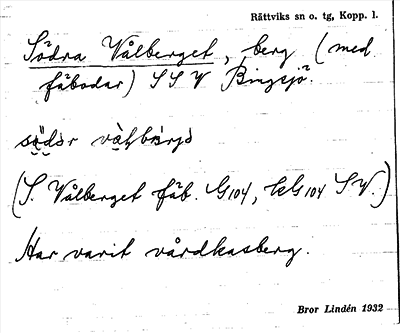 Rättviks sn o. tg, Kopp. l.
Södra Vålberget, berg (med
fäbodar) SSV Bingsjö.
södər
(S. Vålberget fäb. G104, kG104 SV.)
Har varit vårdkasberg.
Bror Lindén 1932